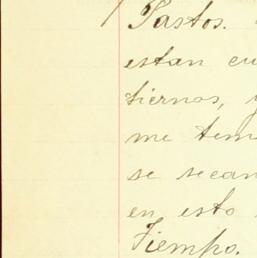 Pastos.
estan cu
tiernos, y
me tem
se secan
en esto
Tiempo.